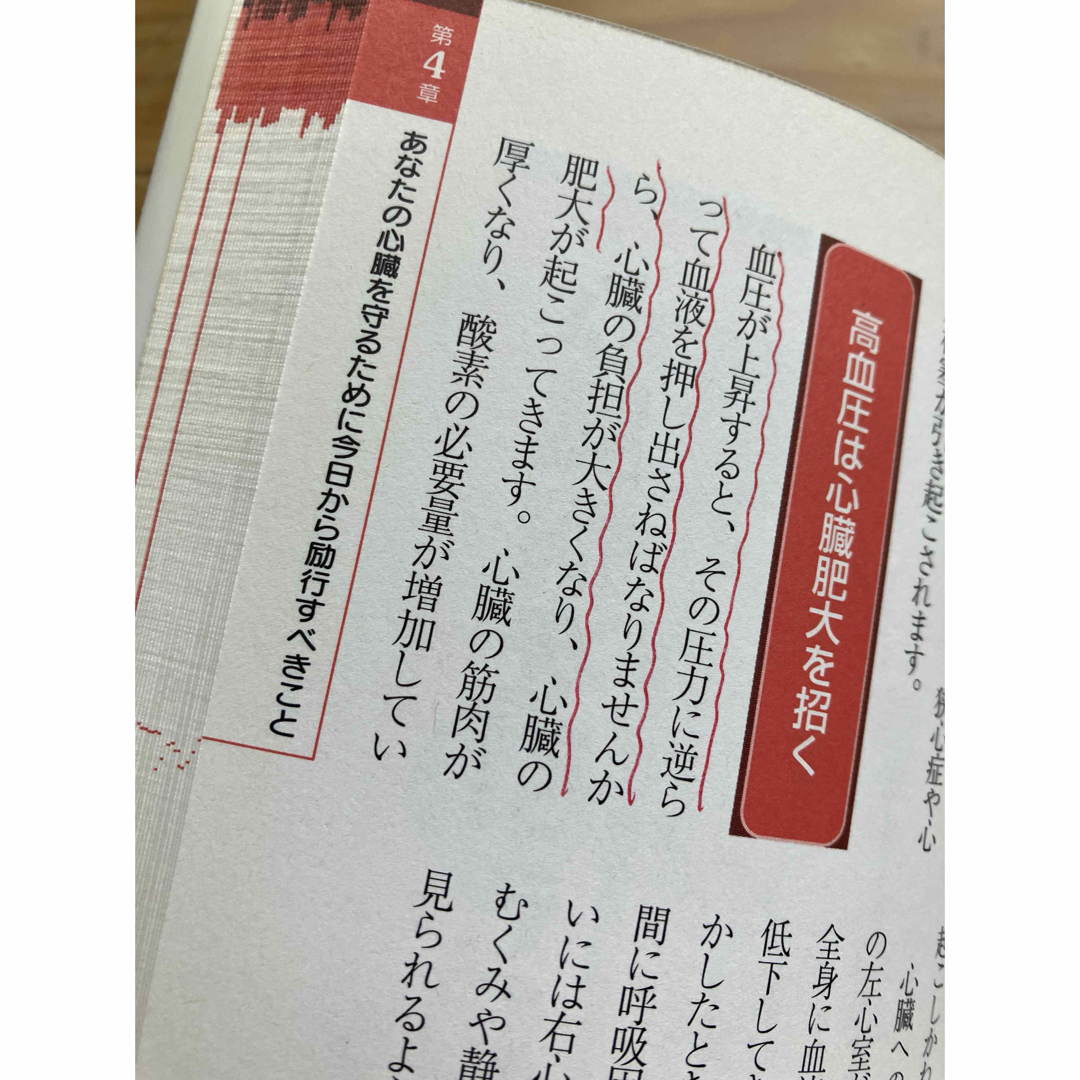 起こされます。 狭心症や心
高血圧は心臓肥大を招く
血圧が上昇すると、その圧力に逆ら
って血液を押し出さねばなりませんか
ら、心臓の負担が大きくなり、心臓の
肥大が起こってきます。心臓の筋肉が
厚くなり、酸素の必要量が増加してい
心臓への
の左心室が
全身に血
低下して
かしたと
間に呼吸
いには右心
むくみや静
見られるよ
第4章
あなたの心臓を守るために今日から励行すべきこと